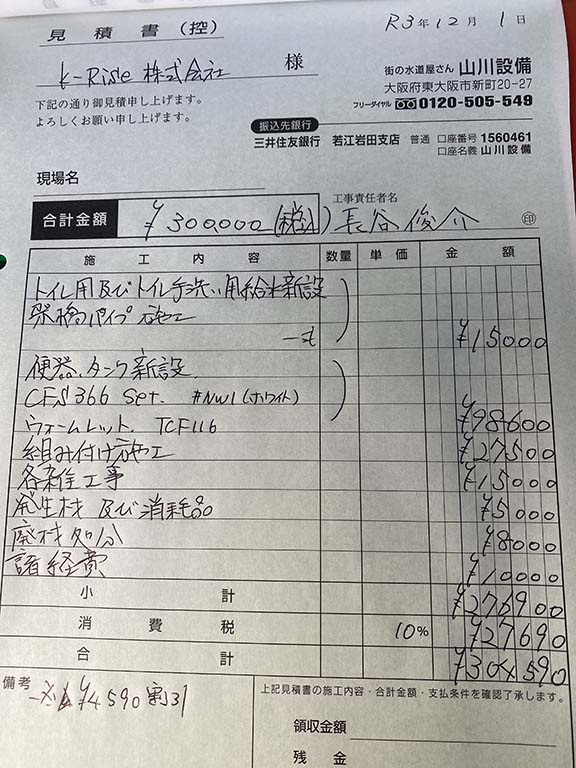 見積書(控)
R3年12月1日
K-Rise 株式会社 様
下記の通り御見積申し上げます。
よろしくお願い申し上げます。
街の水道屋さん 山川設備
大阪府東大阪市新町20-27
フリーダイヤル 0120-505-549
振込先銀行
三井住友銀行 若江岩田支店 普通 口座番号 1560461
口座名義 山川設備
現場名
合計金額 ¥300,000(税込)
工事責任者名
長谷俊介 印
施工内容 数量 単価 金額
トイレ用及びトイレ手洗い用給水新設
架橋パイプ施工
一式 ¥15000
便器、タンク新設
CFS366 Set. #NW1(ホワイト)
ウォームレット. TCF116 ¥98600
組み付け施工 ¥27500
各雑工事 ¥15000
発生材及び消耗品 ¥5000
廃材処分 ¥8000
諸経費 ¥10000
小計 ¥276900
消費税 10% ¥27690
合計 ¥304590
備考
¥4590 割引
上記見積書の施工内容・合計金額・支払条件を確認了承します。
領収金額
残金